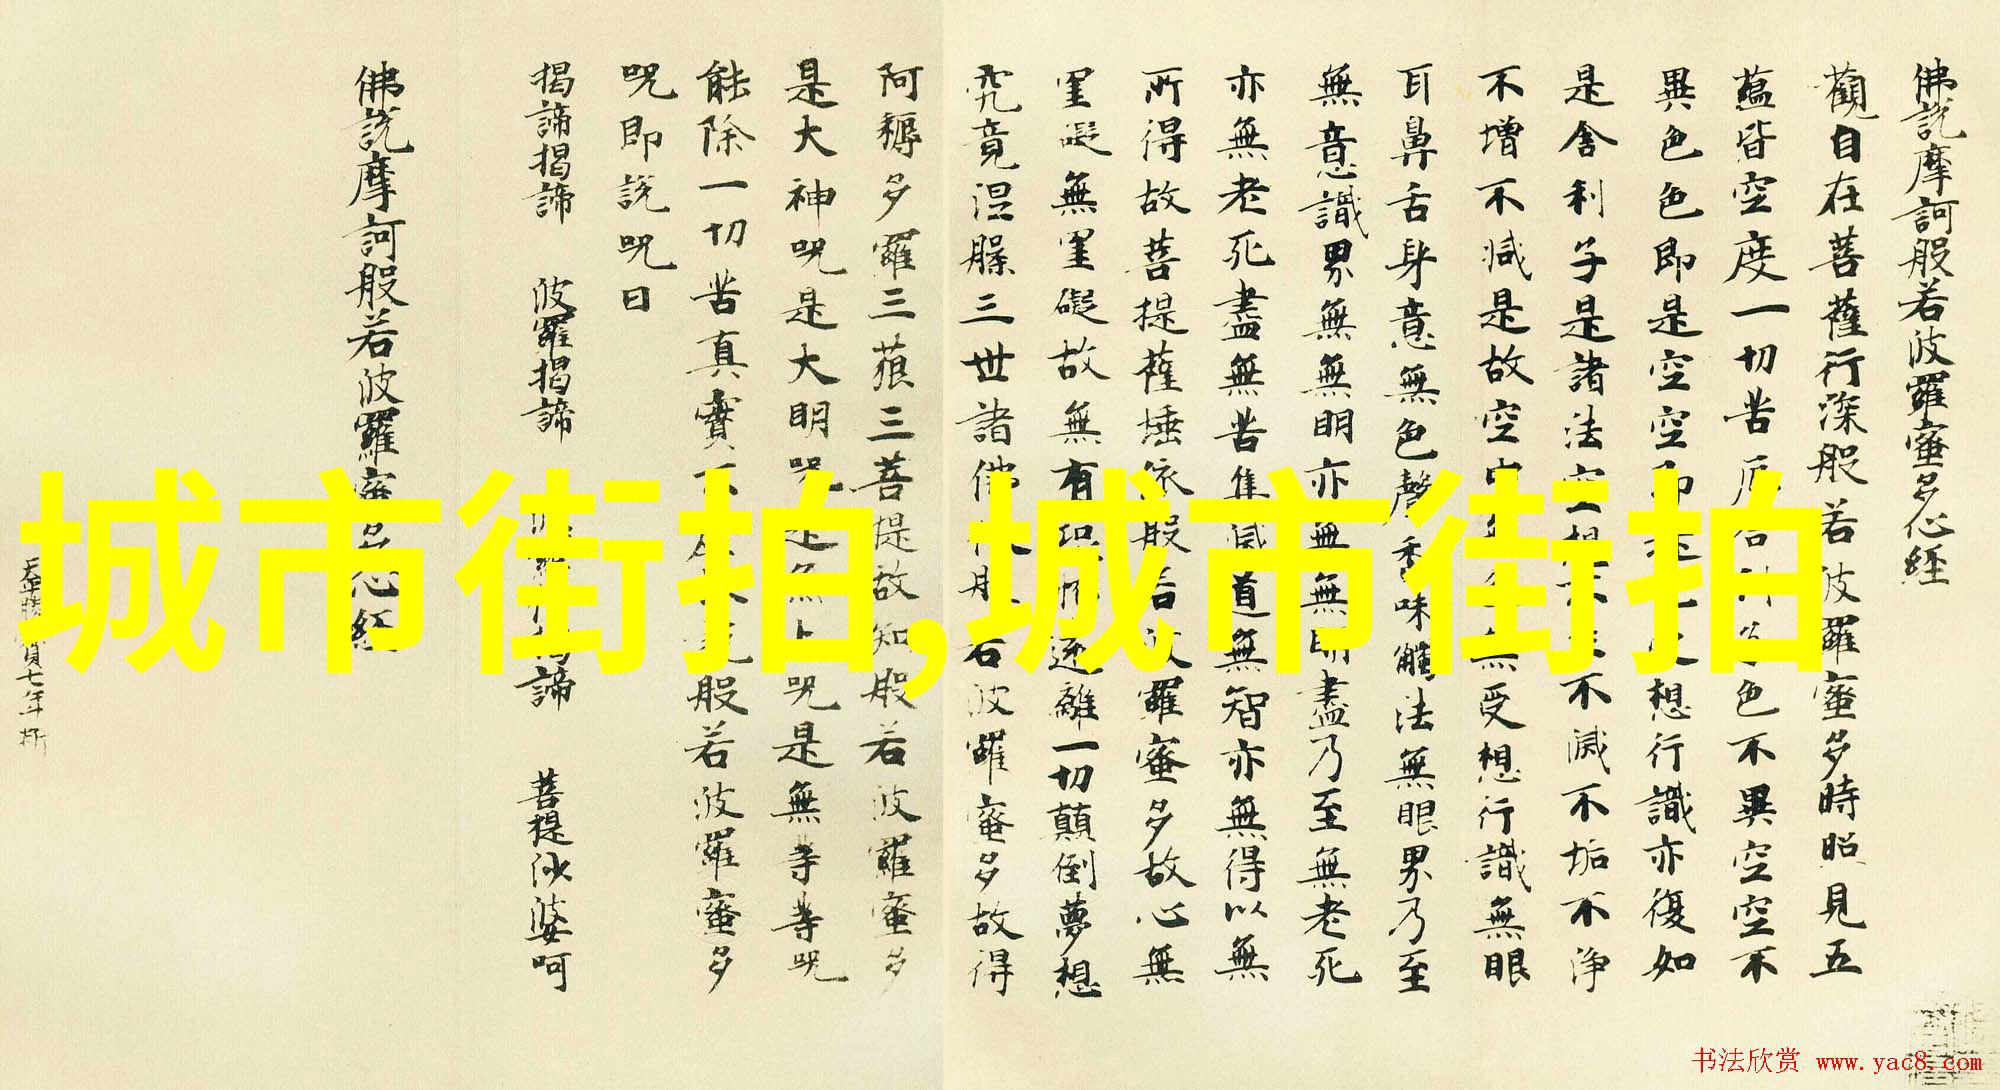 佛說摩訶般若波羅蜜多心経
觀自在菩薩行深般若波羅蜜多時照見五
蘊皆空度一切苦厄舍利子色不異空空不
異色色即是空空即是色受想行識亦復如
是舍利子是諸法空相不生不滅不垢不淨
不增不減是故空中無色無受想行識無眼
耳鼻舌身意無色聲香味觸法無眼界乃至
無意識界無無明亦無無明盡乃至無老死
亦無老死盡無苦集滅道無智亦無得以無
所得故菩提薩埵依般若波羅蜜多故心無
罣礙無罣礙故無有恐怖遠離一切顛倒夢想
究竟涅槃三世諸佛依般若波羅蜜多故得
阿耨多羅三藐三菩提故知般若波羅蜜多
是大神咒是大明咒是無上咒是無等等咒
能除一切苦真實不般若波羅蜜多
咒即說咒曰
揭諦揭諦 波羅揭諦 諦 菩提沙婆呵
佛說摩訶般若波羅蜜多心経
天平勝寶七年
城市街拍,城市街拍
书法欣赏 www.yac8.com